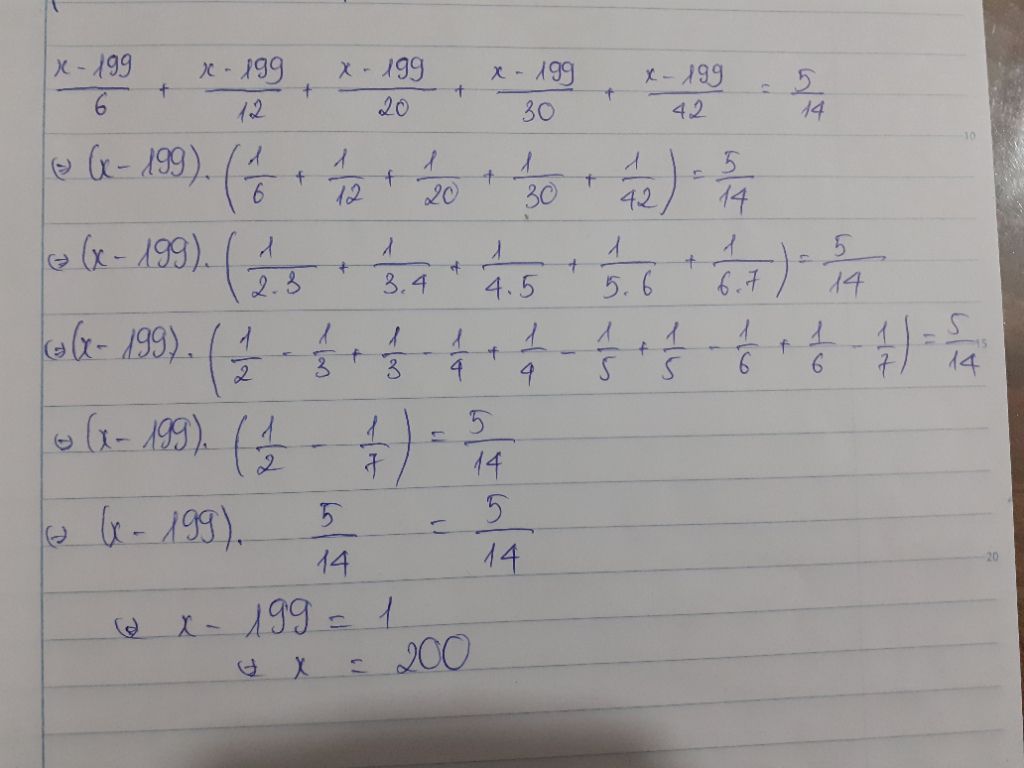 x - 199/6 + x - 199/12 + x - 199/20 + x - 199/30 + x - 199/42 = 5/14
⇔ (x - 199). (1/6 + 1/12 + 1/20 + 1/30 + 1/42) = 5/14
⇔ (x - 199). (1/2.3 + 1/3.4 + 1/4.5 + 1/5.6 + 1/6.7) = 5/14
⇔ (x - 199). (1/2 - 1/3 + 1/3 - 1/4 + 1/4 - 1/5 + 1/5 - 1/6 + 1/6 - 1/7) = 5/14
⇔ (x - 199). (1/2 - 1/7) = 5/14
⇔ (x - 199). 5/14 = 5/14
⇔ x - 199 = 1
⇔ x = 200
10
15
20